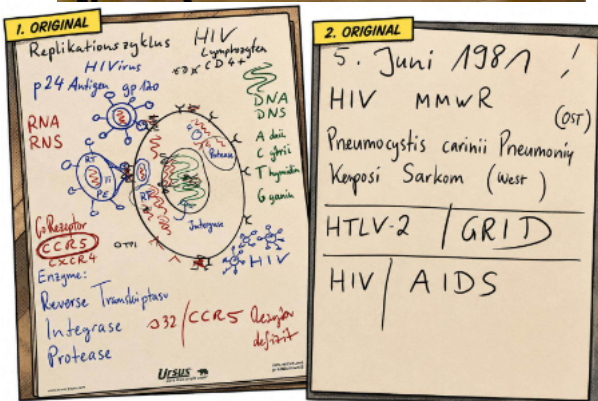 1. ORIGINAL
Replikationszyklus
HIVirus
p24 Antigen gp120
HIV
Lymphozyten
CD4+
RNA
RNS
DNA
DNS
Adnii
Cytrii
Thymidin
Gyanin
RT
PE
RT
Protease
Integrase
Co Rezeptor
CCR5
CXCR4
OTPi
HIV
Enzyme:
Reverse Transkiptase
Integrase
Protease
Δ32/CCR5 Rezeptor
defizit
Ursus
2. ORIGINAL
5. Juni 1981 !
HIV MMWR
(OST)
Pneumocystis carinii Pneumoniy
Kaposi Sarkom (West)
HTLV-2 / GRID
HIV / AIDS